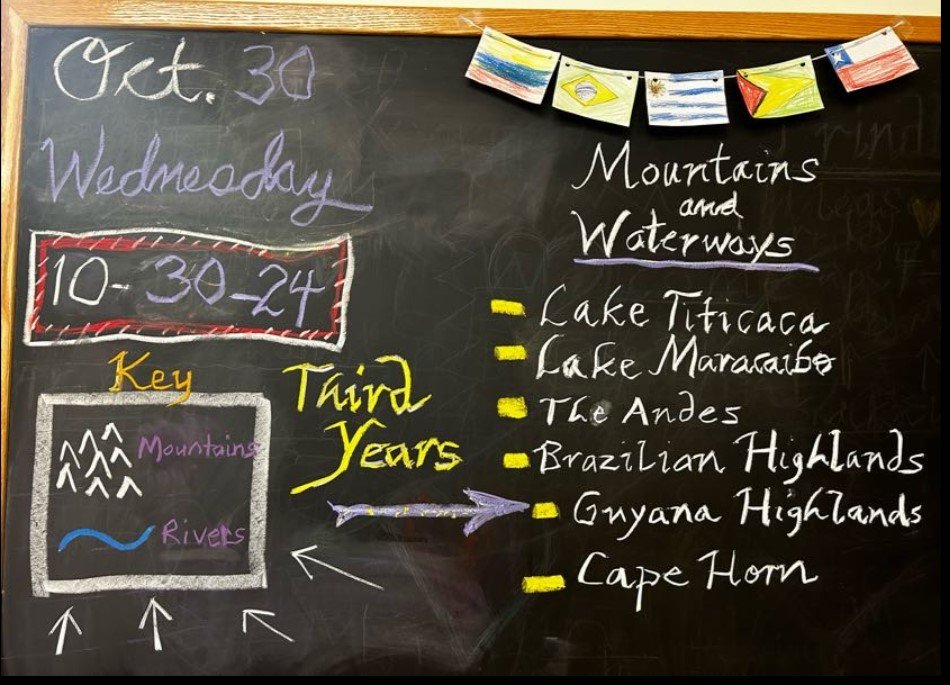 Oct. 30
Wednesday
10-30-24
Key
Mountains
Rivers
Third
Years
Mountains
and
Waterways
Lake Titicaca
Lake Maracaibo
The Andes
Brazilian Highlands
Guyana Highlands
Cape Horn